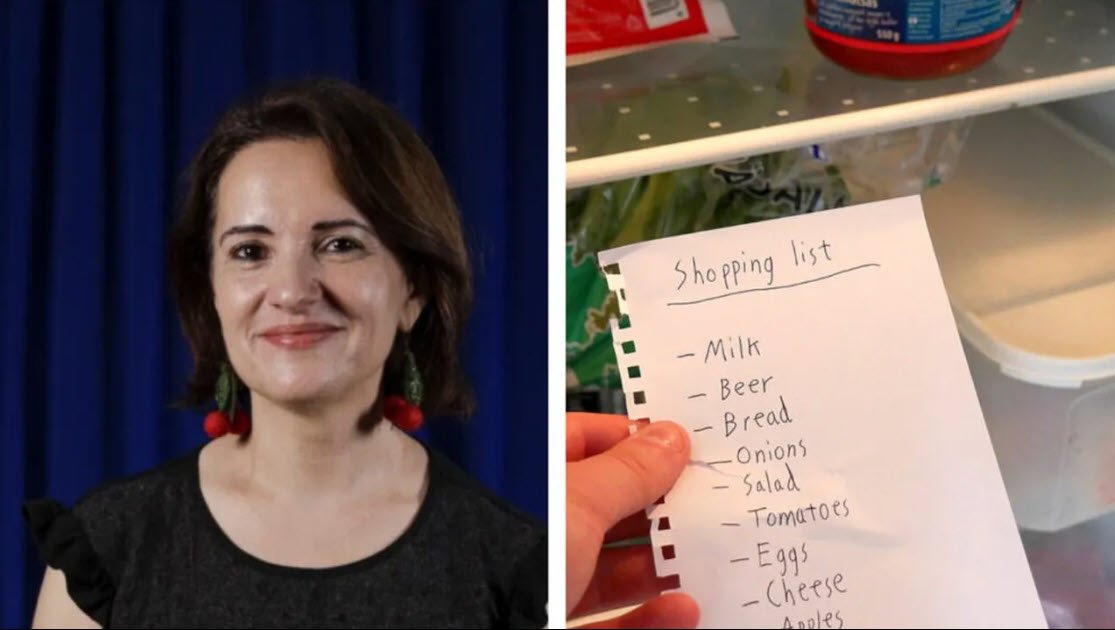 550 g
Shopping list
- Milk
- Beer
- Bread
- Onions
- Salad
- Tomatoes
- Eggs
- Cheese
- Apples